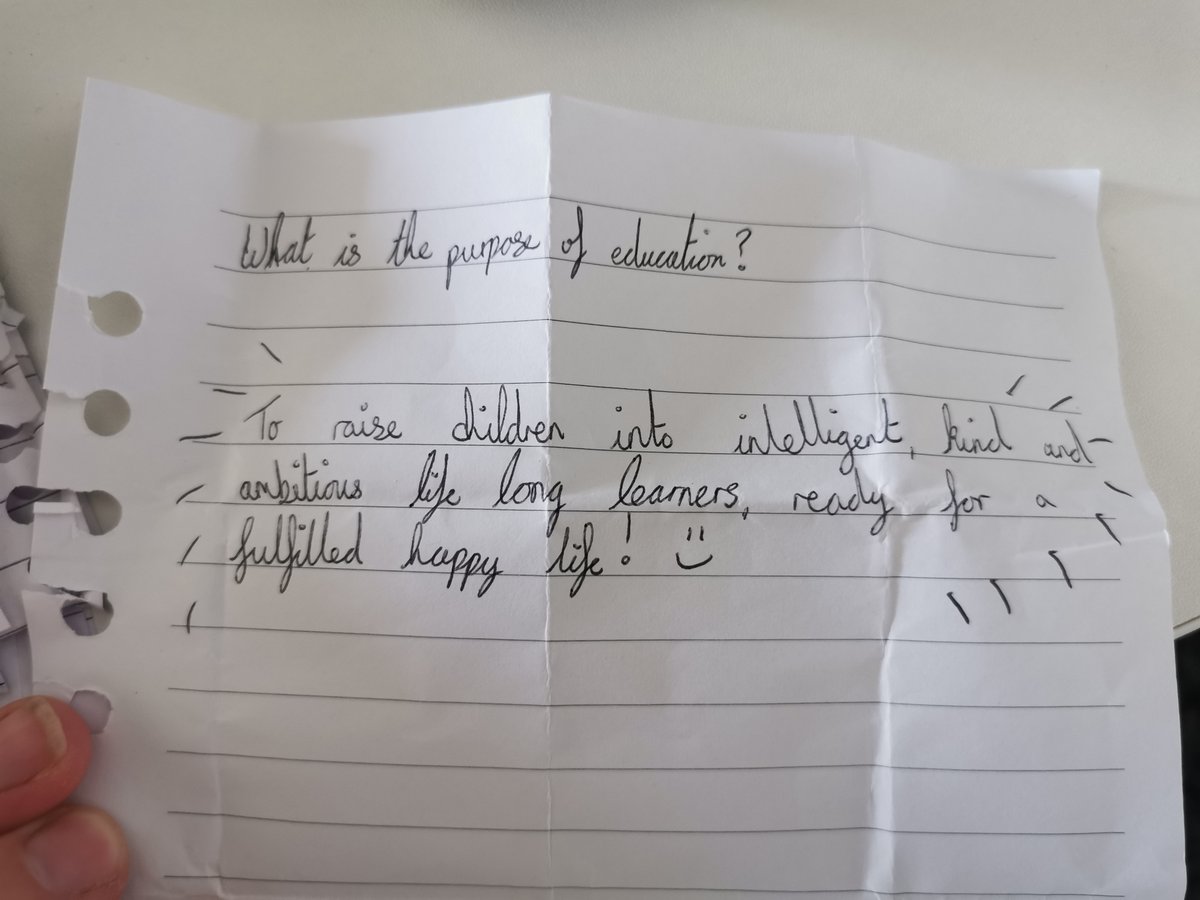 What is the purpose of education?
To raise children into intelligent, kind and
ambitious life long learners, ready for a
fulfilled happy life! :)